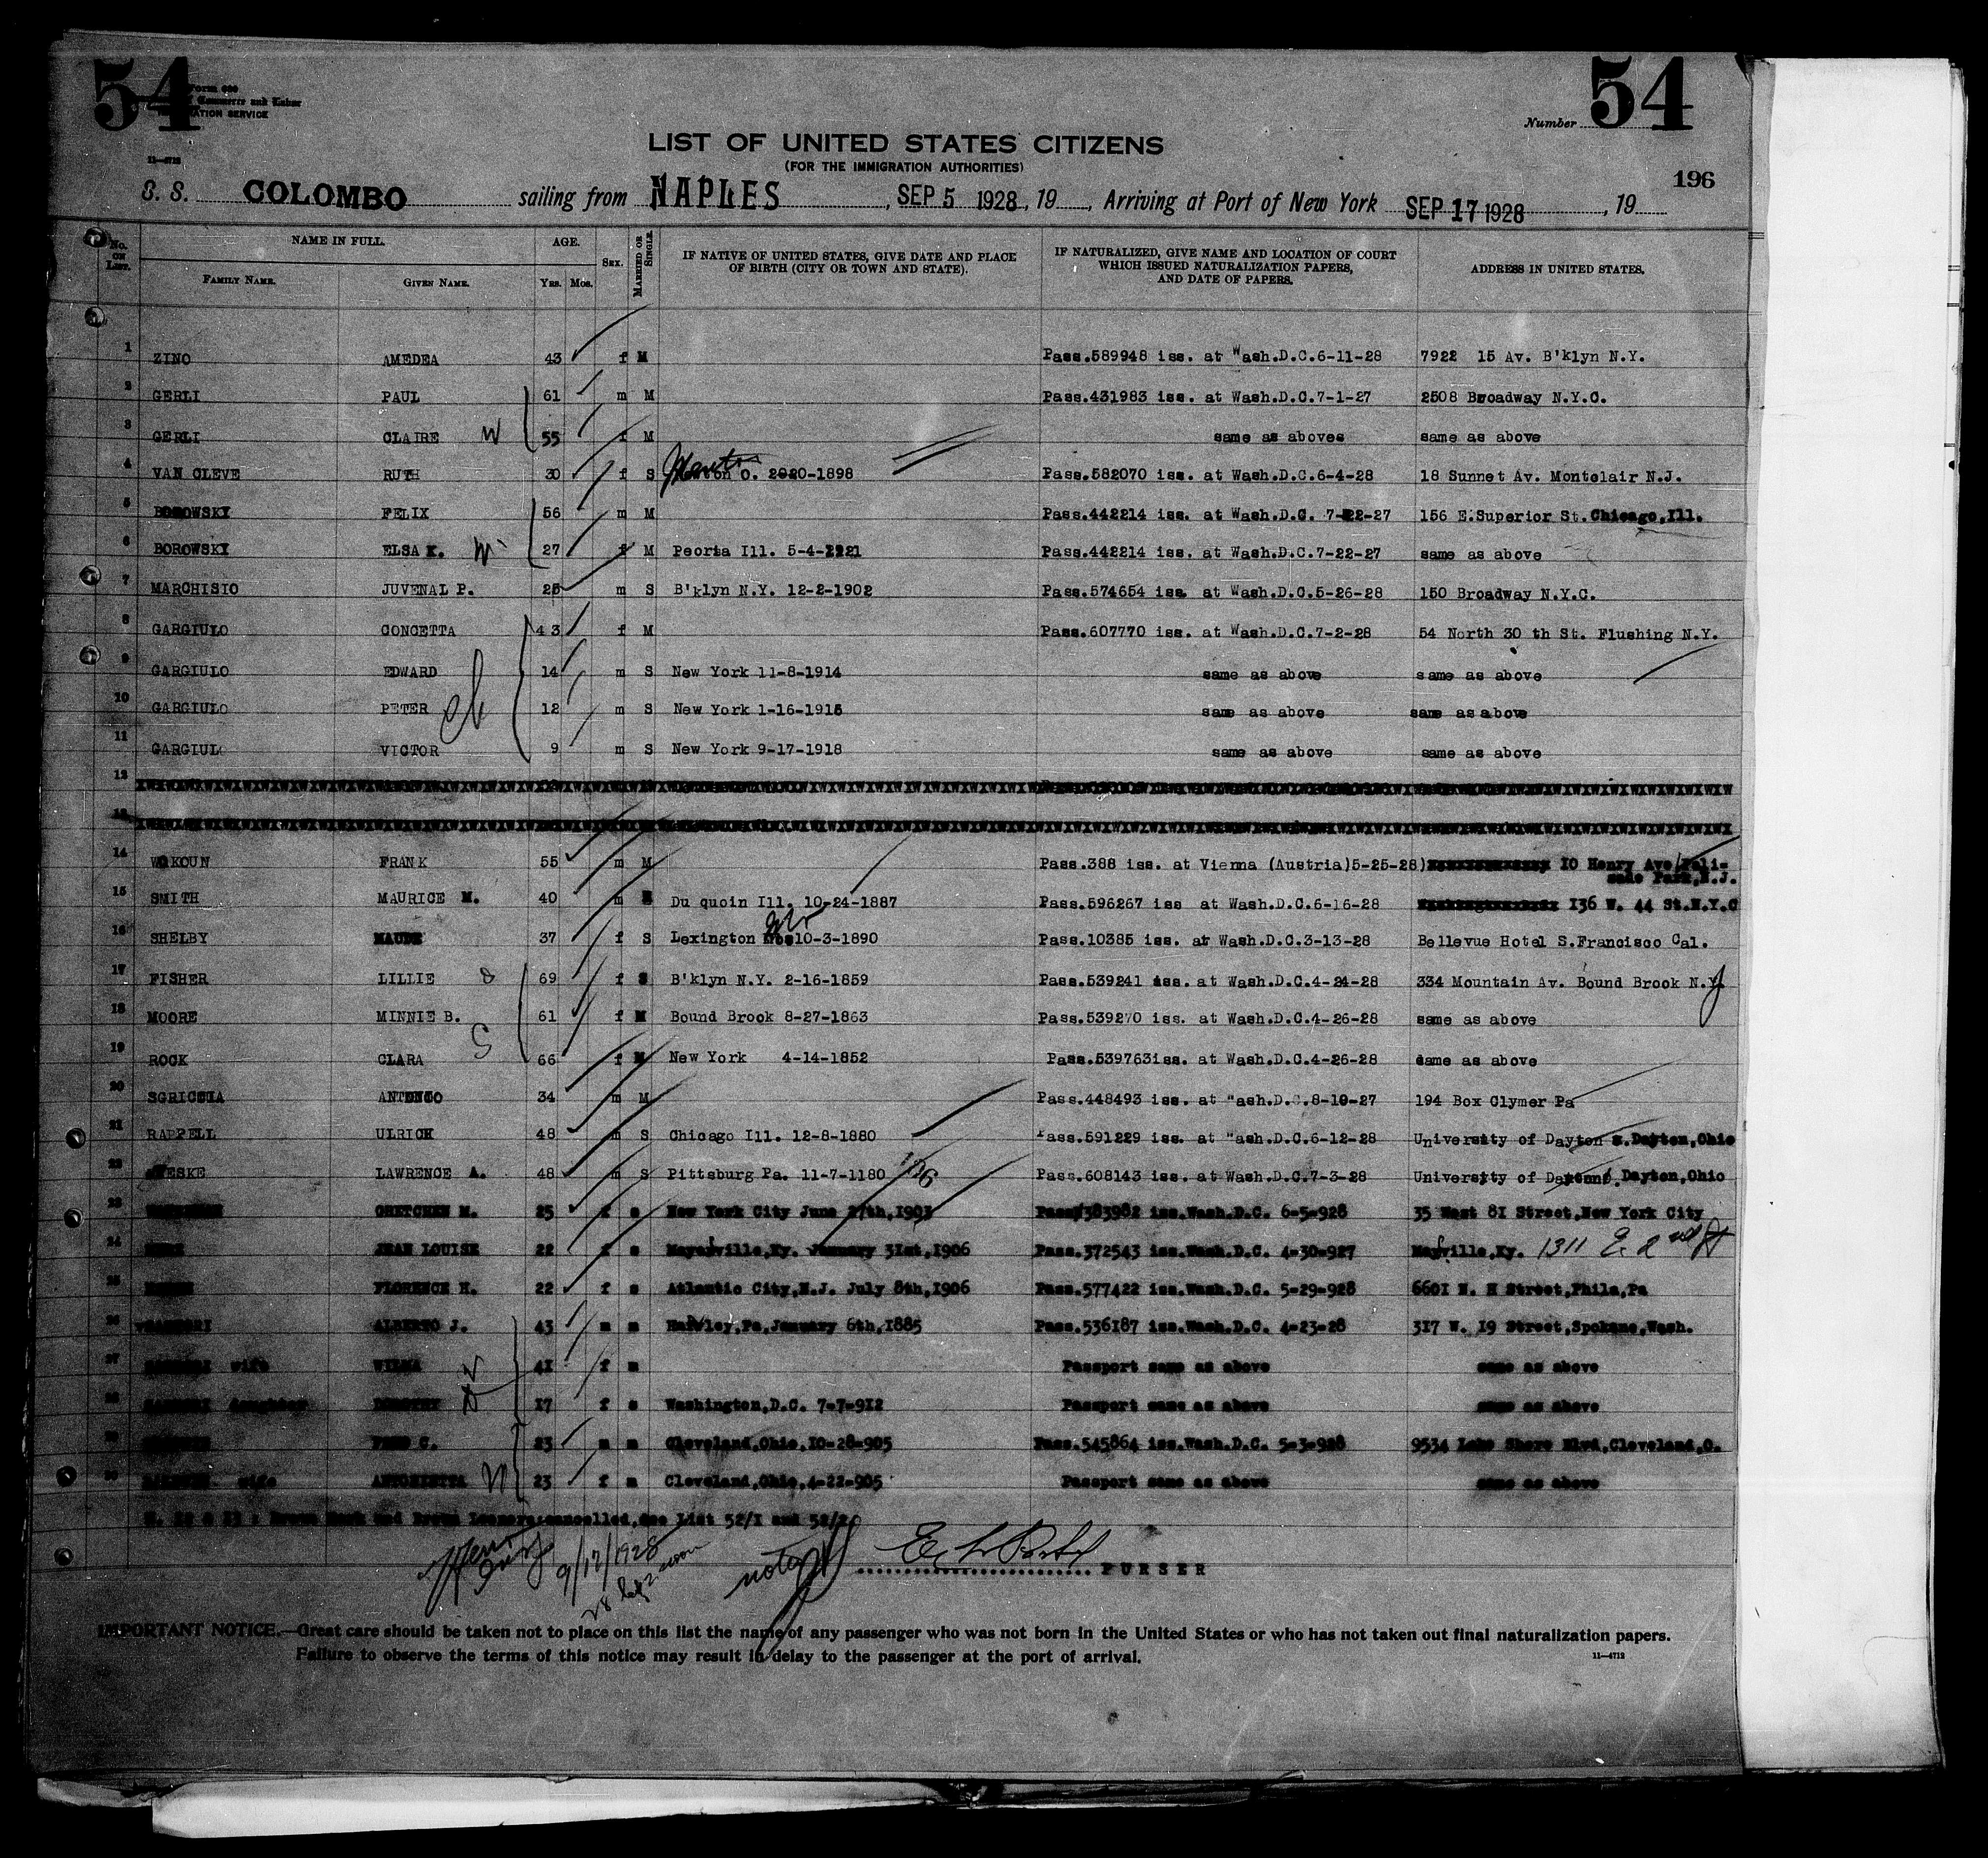 54 54
Form 630
Commerce and Labor
IMMIGRATION SERVICE
Number
11—4712
LIST OF UNITED STATES CITIZENS
(FOR THE IMMIGRATION AUTHORITIES)
196
S. S. COLOMBO sailing from NAPLES, SEP 5 1928, 19, Arriving at Port of New York SEP 17 1928, 19
No. ON LIST. NAME IN FULL. AGE. SEX. MARRIED OR SINGLE. IF NATIVE OF UNITED STATES, GIVE DATE AND PLACE OF BIRTH (CITY OR TOWN AND STATE). IF NATURALIZED, GIVE NAME AND LOCATION OF COURT WHICH ISSUED NATURALIZATION PAPERS, AND DATE OF PAPERS. ADDRESS IN UNITED STATES.
FAMILY NAME. GIVEN NAME. YRS. MOS.
1 ZINO AMEDEA 43 f M Pass.589948 iss. at Wash.D.C.6-11-28 7922 15 Av. B'klyn N.Y.
2 GERLI PAUL 61 m M Pass.431983 iss. at Wash.D.C.7-1-27 2508 Broadway N.Y.C.
3 GERLI CLAIRE W 55 f M same as above same as above
4 VAN CLEVE RUTH 30 f S O. 2020-1898 Pass.582070 iss. at Wash.D.C.6-4-28 18 Sunnet Av. Montclair N.J.
5 BOROWSKI FELIX 56 m M Pass.442214 iss. at Wash.D.C. 7-22-27 156 E.Superior St.Chicago,Ill.
6 BOROWSKI ELSA K. W 27 f M Peoria Ill. 5-4- Pass.442214 iss. at Wash.D.C.7-22-27 same as above
7 MARCHISIO JUVENAL P. 25 m S B'klyn N.Y. 12-2-1902 Pass.574654 iss. at Wash.D.C.5-26-28 150 Broadway N.Y.C.
8 GARGIULO CONCETTA 43 f M Pass.607770 iss. at Wash.D.C.7-2-28 54 North 30 th St. Flushing N.Y.
9 GARGIULO EDWARD 14 m S New York 11-8-1914 same as above same as above
10 GARGIULO PETER ch 12 m S New York 1-16-1916 same as above same as above
11 GARGIULO VICTOR 9 m S New York 9-17-1918 same as above same as above
12
13
14 WOKOUN FRANK 55 m M Pass.388 iss. at Vienna (Austria)5-25-28) 10 Henry Ave Pali-
sade Park,N.J.
15 SMITH MAURICE M. 40 m Du quoin Ill. 10-24-1887 Pass.596267 iss at Wash.D.C.6-16-28 136 W. 44 St.N.Y.C
16 SHELBY MAUDE 37 f S Lexington 10-3-1890 Pass.10385 iss. at Wash.D.C.3-13-28 Bellevue Hotel S.Francisco Cal.
17 FISHER LILLIE 69 f S B'klyn N.Y. 2-16-1859 Pass.539241 iss. at Wash.D.C.4-24-28 334 Mountain Av. Bound Brook N.J
18 MOORE MINNIE B. 61 f M Bound Brook 8-27-1863 Pass.539270 iss. at Wash.D.C.4-26-28 same as above
19 ROCK CLARA 66 f New York 4-14-1852 Pass.539763iss. at Wash.D.C.4-26-28 same as above
20 ANTONIO 34 m M Pass.448493 iss. at "ash.D.C.8-10-27 194 Box Clymer Pa
21 RAPPELL ULRICH 48 m S Chicago Ill. 12-8-1880 Pass.591229 iss. at "ash.D.C.6-12-28 University of Dayton Dayton,Ohio
22 LAWRENCE A. 48 m S Pittsburg Pa. 11-7-1180 Pass.608143 iss. at Wash.D.C.7-3-28 University of Dayton Dayton,Ohio
23 GRETCHEN M. 25 f s New York City June 27th,1903 Pass.383982 iss.Wash.D.C. 6-5-928 35 West 81 Street,New York City
24 JEAN LOUISE 22 f s Maysville,Ky. January 31st,1906 Pass.372543 iss.Wash.D.C. 4-30-927 Maysville,Ky. 1311 E. 2nd St
25 FLORENCE H. 22 f s Atlantic City,N.J. July 8th,1906 Pass.577422 iss.Wash.D.C. 5-29-928 6601 N. H Street,Phila,Pa
26 ALBERTO J. 43 m m Pa,January 6th,1885 Pass.536187 iss.Wash.D.C. 4-23-28 317 W. 19 Street,Spokane,Wash.
27 wife WILMA 41 f m Passport same as above same as above
28 daughter DOROTHY 17 f s Washington,D.C. 7-7-912 Passport same as above same as above
29 FRED C. 23 m m Cleveland,Ohio,10-28-905 Pass.545864 iss.Wash.D.C. 5-3-928 9534 Lake Shore Blvd,Cleveland,O.
30 wife ANTONIETTA W 23 f m Cleveland,Ohio,4-22-905 Passport same as above same as above
N. 12 & 13 : Brown and Brown cancelled,See List 52/1 and 52/2
9/17/1928
PURSER
IMPORTANT NOTICE.—Great care should be taken not to place on this list the name of any passenger who was not born in the United States or who has not taken out final naturalization papers.
Failure to observe the terms of this notice may result in delay to the passenger at the port of arrival.
11—4712